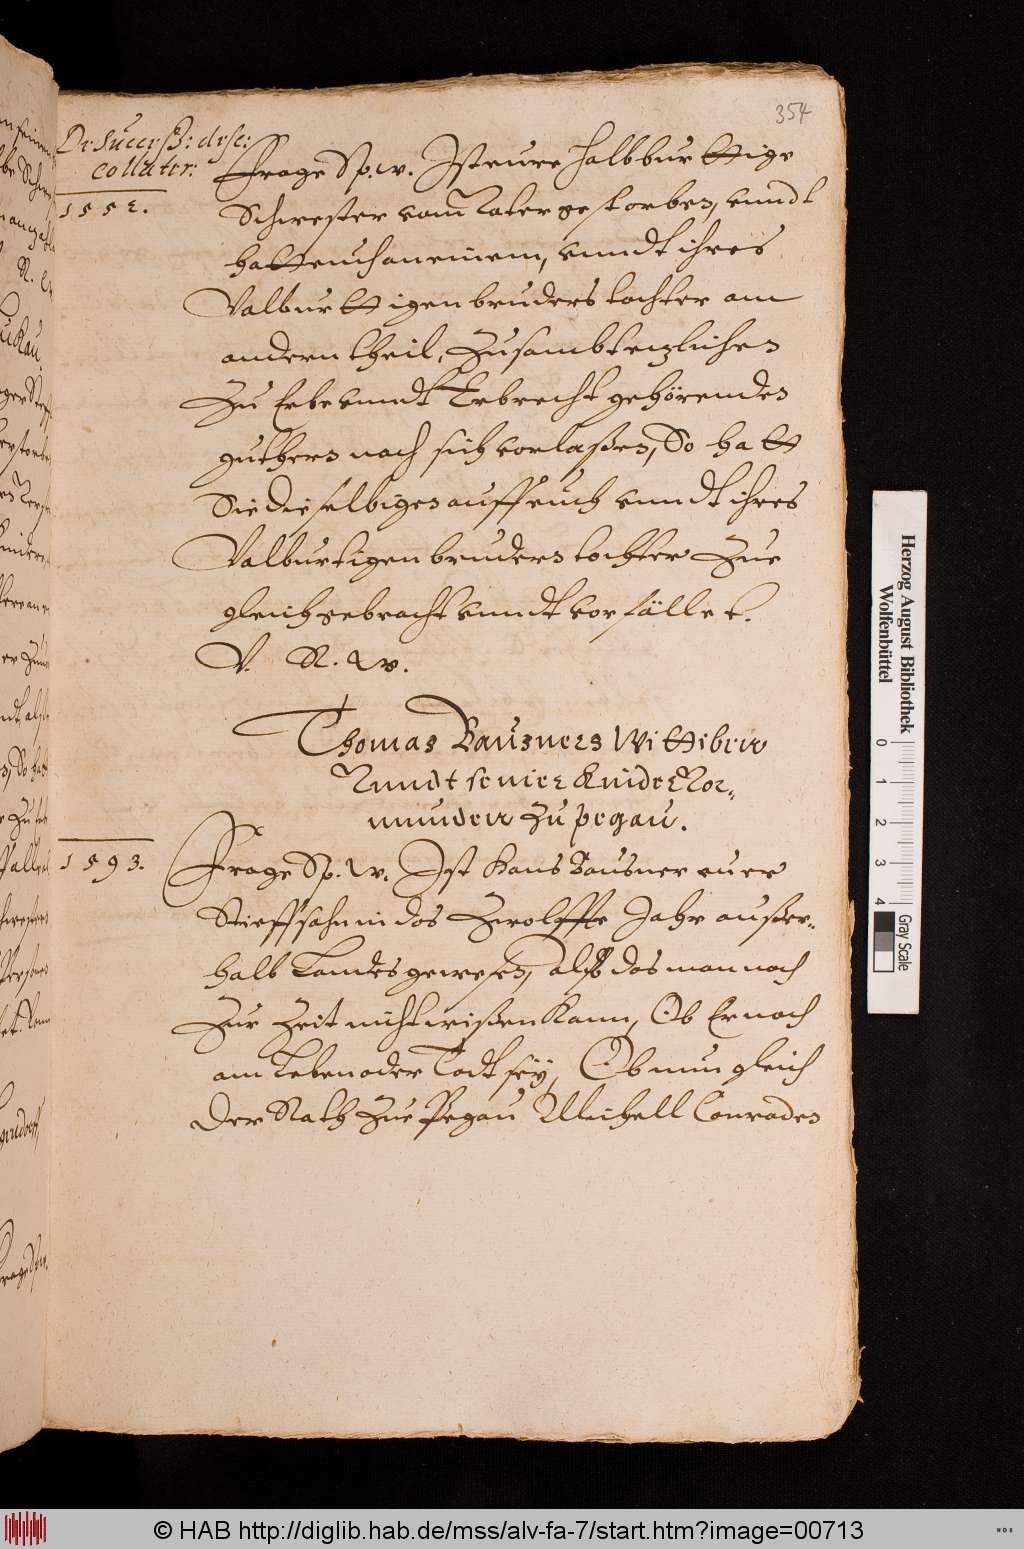 354
De Succeß: desc:
collater:
1552.
Frage Sp. w. Ist eure halbburttige
Schwester vom Vater gestorben, vnndt
hatt euch an einem, vnndt ihres
Valburttigen bruders tochter am
andern theil, Zusambt entzlichen
Zu Erbe vnndt Erbrecht gehörenden
guthern nach sich vorlaßen, So hatt
Sie dieselbigen auff euch vnndt ihres
Valburtigen bruders tochter Zue
gleich gebracht vnndt vorfället.
V. R. W.
Thomas Bausners Wittiben
Vnndt seiner Kinder Vor-
munden Zu pegau.
1593.
Frage Sp. W. Ist Hans Bausner euer
Stieffsohn in das Zwolffte Jahr außer-
halb Landes gewesen, also das man noch
Zur Zeit nicht wißen Kann, Ob Er noch
am Leben oder Todt sey, Ob nun gleich
Der Rath Zue Pegau Michell Conraden
Herzog August Bibliothek
Wolfenbüttel
0 1 2 3 4
Gray Scale
© HAB http://diglib.hab.de/mss/alv-fa-7/start.htm?image=00713